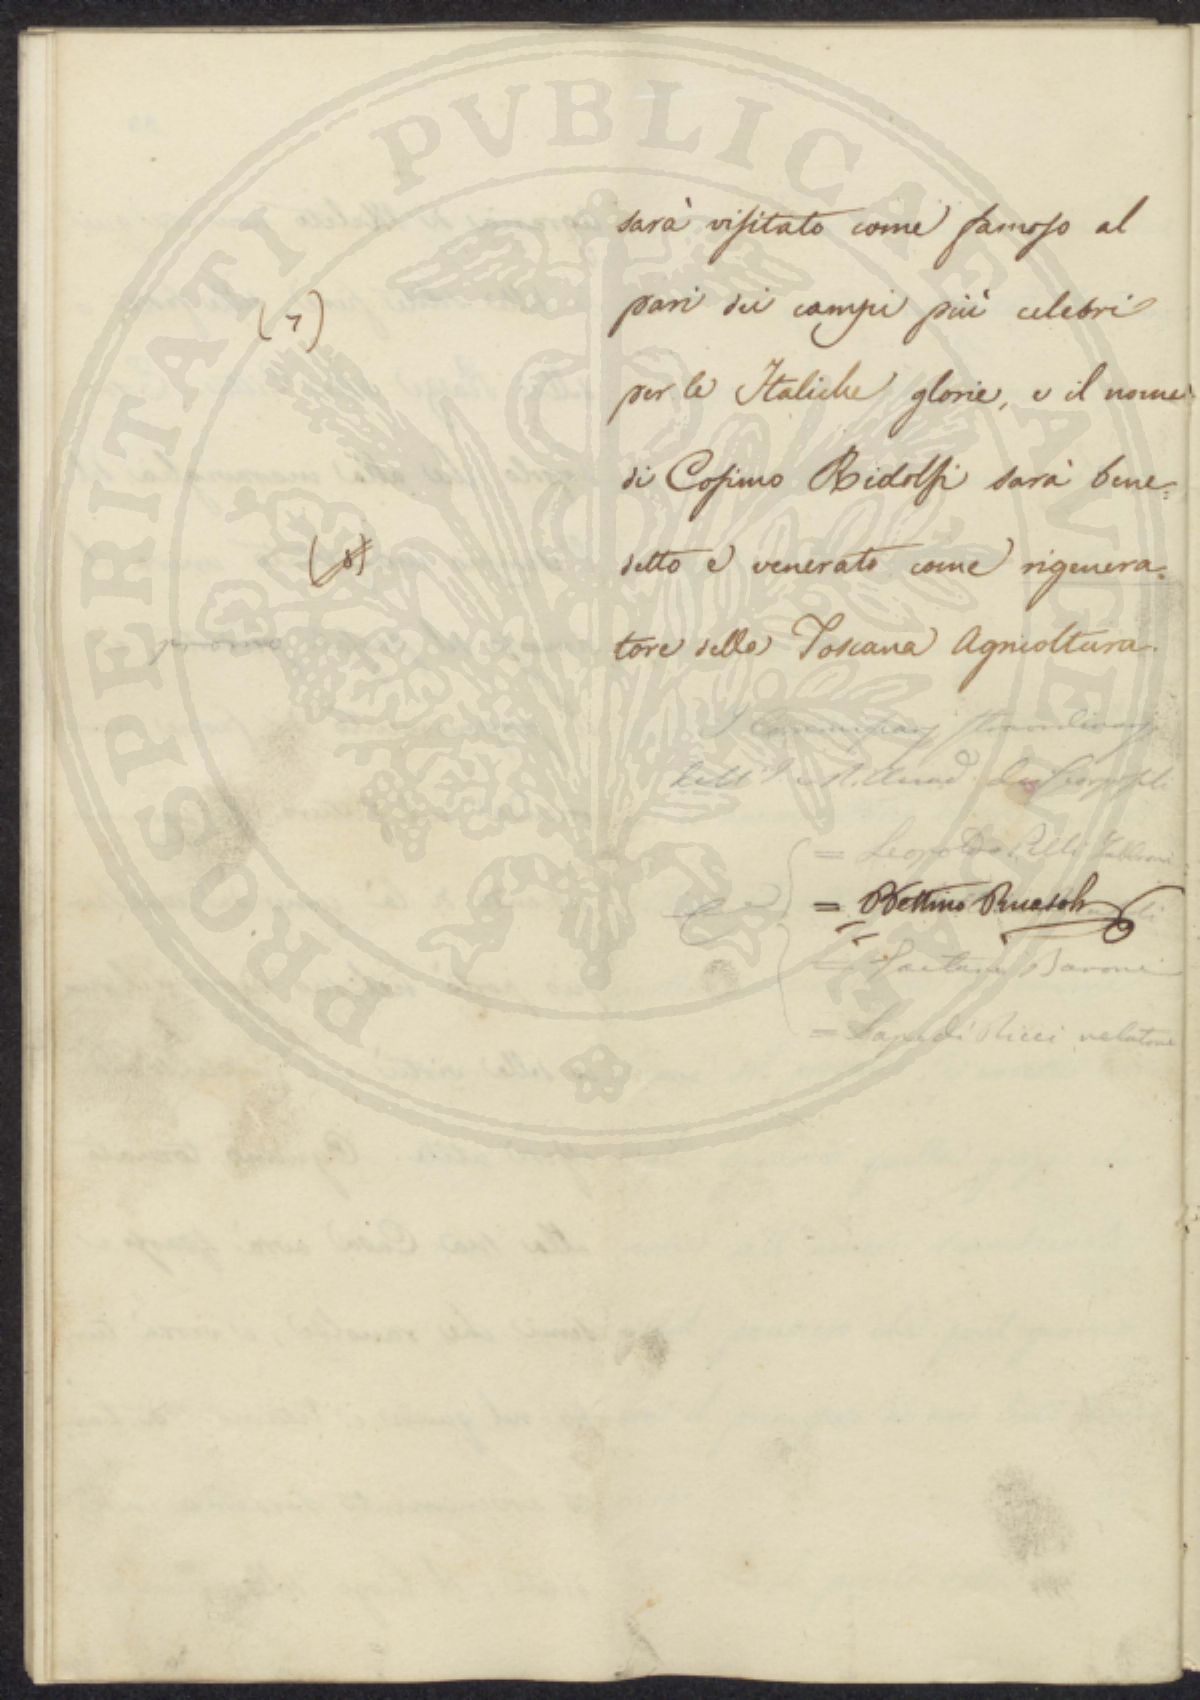 PROSPERITATI PVBLICAE AVGENDAE
sarà visitato come famoso al
pari dei campi più celebri
(7)
per le Italiche glorie, e il nome
di Cosimo Ridolfi sarà bene=
(8)
detto e venerato come rigenera=
tore della Toscana Agricoltura.
I Commissarj straordinarj
dell' I. e R. Accad. dei Georgofili
= Leopoldo Pelli Fabbroni
= Bettino Ricasoli
= Gaetano Baroni
= Lapo de' Ricci relatore